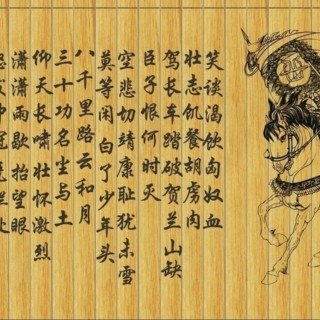 笑谈渴饮匈奴血
壮志饥餐胡虏肉
驾长车踏破贺兰山缺
臣子恨何时灭
空悲切靖康耻犹未雪
莫等闲白了少年头
八千里路云和月
三十功名尘与土
仰天长啸壮怀激烈
潇潇雨歇抬望眼